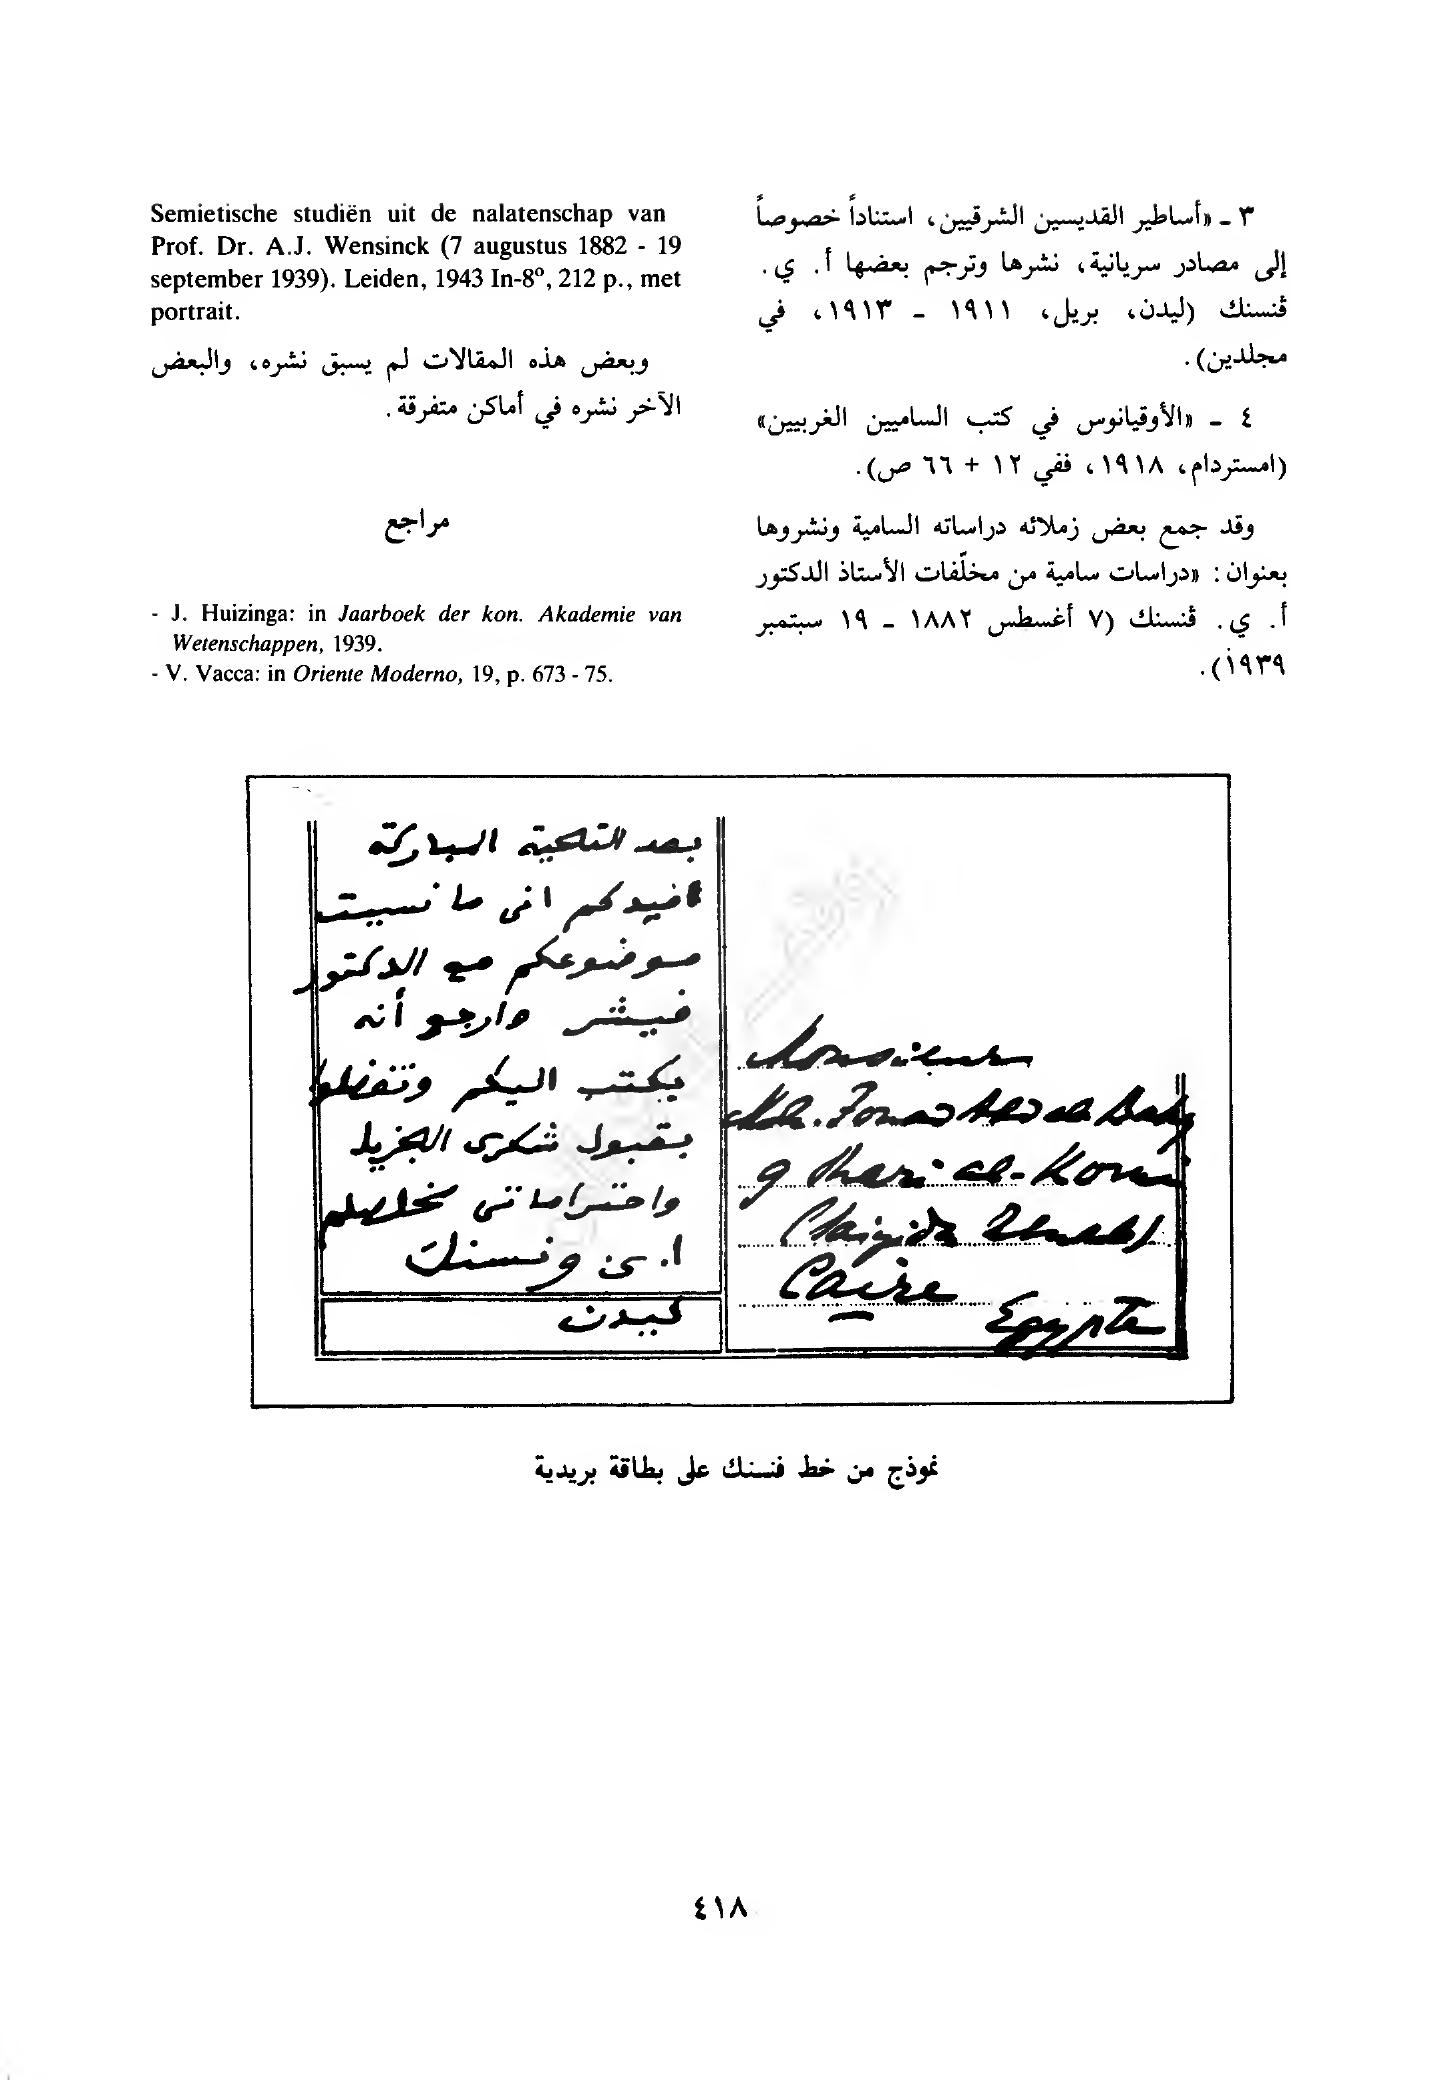 ٣ ـ «أساطير القديسين الشرقيين، استناداً خصوصاً
إلى مصادر سريانية، نشرها وترجم بعضها أ. ي.
ڤنسنك (ليدن، بريل، ١٩١١ ـ ١٩١٣، في
مجلدين).
٤ ـ «الأوقيانوس في كتب الساميين الغربيين»
(امستردام، ١٩١٨، ففي ١٢ + ٦٦ ص).
وقد جمع بعض زملائه دراساته السامية ونشروها
بعنوان: «دراسات سامية من مخلّفات الأستاذ الدكتور
أ. ي. ڤنسنك (٧ أغسطس ١٨٨٢ ـ ١٩ سبتمبر
١٩٣٩).
Semietische studiën uit de nalatenschap van
Prof. Dr. A.J. Wensinck (7 augustus 1882 - 19
september 1939). Leiden, 1943 In-8º, 212 p., met
portrait.
وبعض هذه المقالات لم يسبق نشره، والبعض
الآخر نشره في أماكن متفرقة.
مراجع
- J. Huizinga: in Jaarboek der kon. Akademie van
Wetenschappen, 1939.
- V. Vacca: in Oriente Moderno, 19, p. 673 - 75.
بعد التحية المباركة
افيدكم انى ما نسيت
موضوعكم مع الدكتور
فيشر وارجو أنه
يكتب اليكم وتفضلوا
بقبول شكرى الجزيل
واحتراماتى مخلصكم
ا. ى ونسنك
ليدن
Monsieur
Moh. Fouad Abd al Baky
9 Shari al-Kourn
Caire
Egypte
نموذج من خط فنسنك على بطاقة بريدية
٤١٨